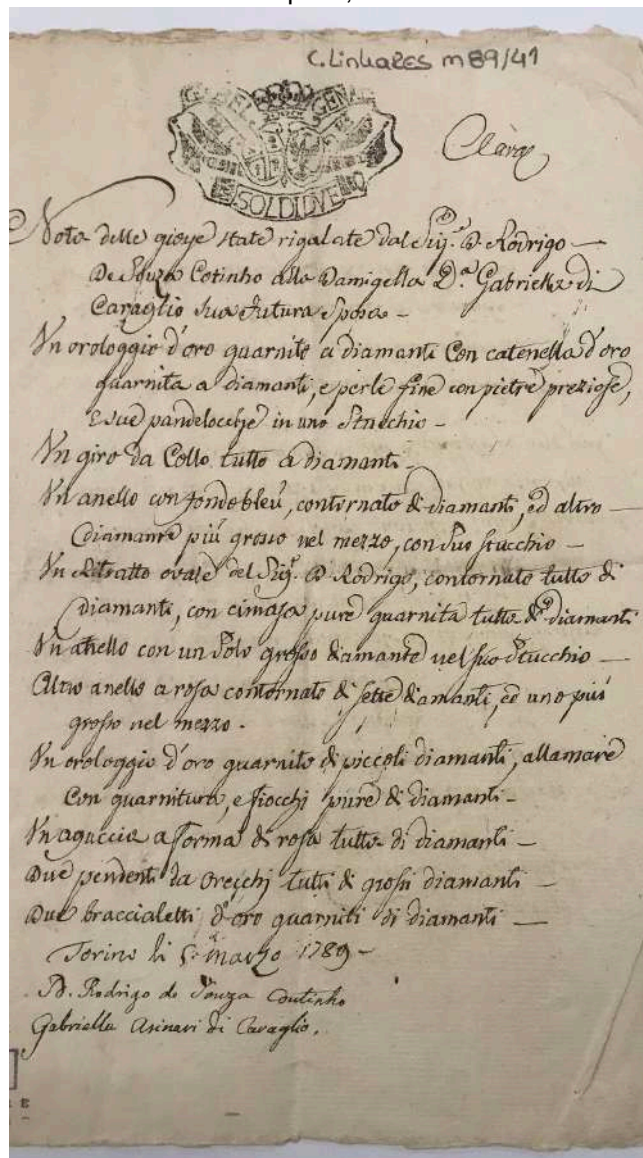 C. Linhares m 89/41
SOLDI DVE
Nota delle gioye state rigalate dal Sig.r D. Rodrigo —
De Souza Cotinho alla Damigella D.a Gabriella di
Caraglio sua futura sposa –
Un orologgio d'oro guarnito a diamanti Con catenella d'oro
guarnita a diamanti, e perle fine con pietre preziose,
E sue pandelocche in uno Stucchio –
Un giro da Collo tutto a diamanti –
Un anello con fondo bleú, contornato di diamanti, ed altro —
diamante più grosso nel mezzo, con suo stucchio —
Un Ritratto ovale del Sig.r D. Rodrigo, contornato tutto di
diamanti, con cimasa pure guarnita tutta di diamanti
Un anello con un Solo grosso diamante nel suo Stucchio —
Altro anello a rosa contornato di sette diamanti, ed uno più
grosso nel mezzo.
Un orologgio d'oro guarnito di piccoli diamanti, allamare
Con guarnitura, e fiocchi pure di diamanti –
Un aguccia a forma di rosa tutta di diamanti —
Due pendenti da orecchj tutti di grossi diamanti —
Due braccialetti d'oro guarniti di diamanti —
Torino li 5. marzo 1789 –
D. Rodrigo de Souza Coutinho
Gabriella Asinari di Caraglio.